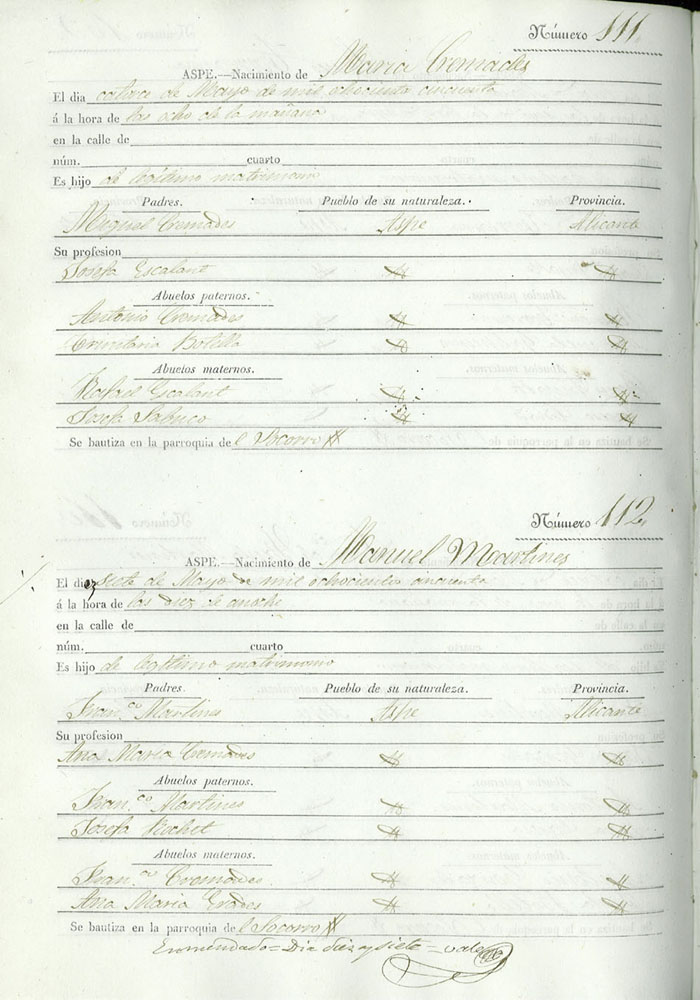 Número 111
ASPE.—Nacimiento de Maria Cremades
El dia catorce de Mayo de mil ochociento cincuenta
á la hora de las ocho de la mañana
en la calle de
núm. cuarto
Es hijo de legitimo matrimonio
Padres. Pueblo de su naturaleza. Provincia.
Miguel Cremades Aspe Alicante
Su profesion
Josefa Escalant
Abuelos paternos.
Antonio Cremades
Botella
Abuelos maternos.
Rafael Escalant
Josefa
Se bautiza en la parroquia de l Socorro
Número 112
ASPE.—Nacimiento de Manuel Martines
El diez siete de Mayo de mil ochocientos cincuenta
á la hora de las diez de anoche
en la calle de
núm. cuarto
Es hijo de legitimo matrimonio
Padres. Pueblo de su naturaleza. Provincia.
Fran.co Martines Aspe Alicante
Su profesion
Ana Maria Cremades
Abuelos paternos.
Fran.co Martines
Josefa
Abuelos maternos.
Fran.co Cremades
Ana Maria
Se bautiza en la parroquia de l Socorro
Enmendado = Dia diez y siete = vale